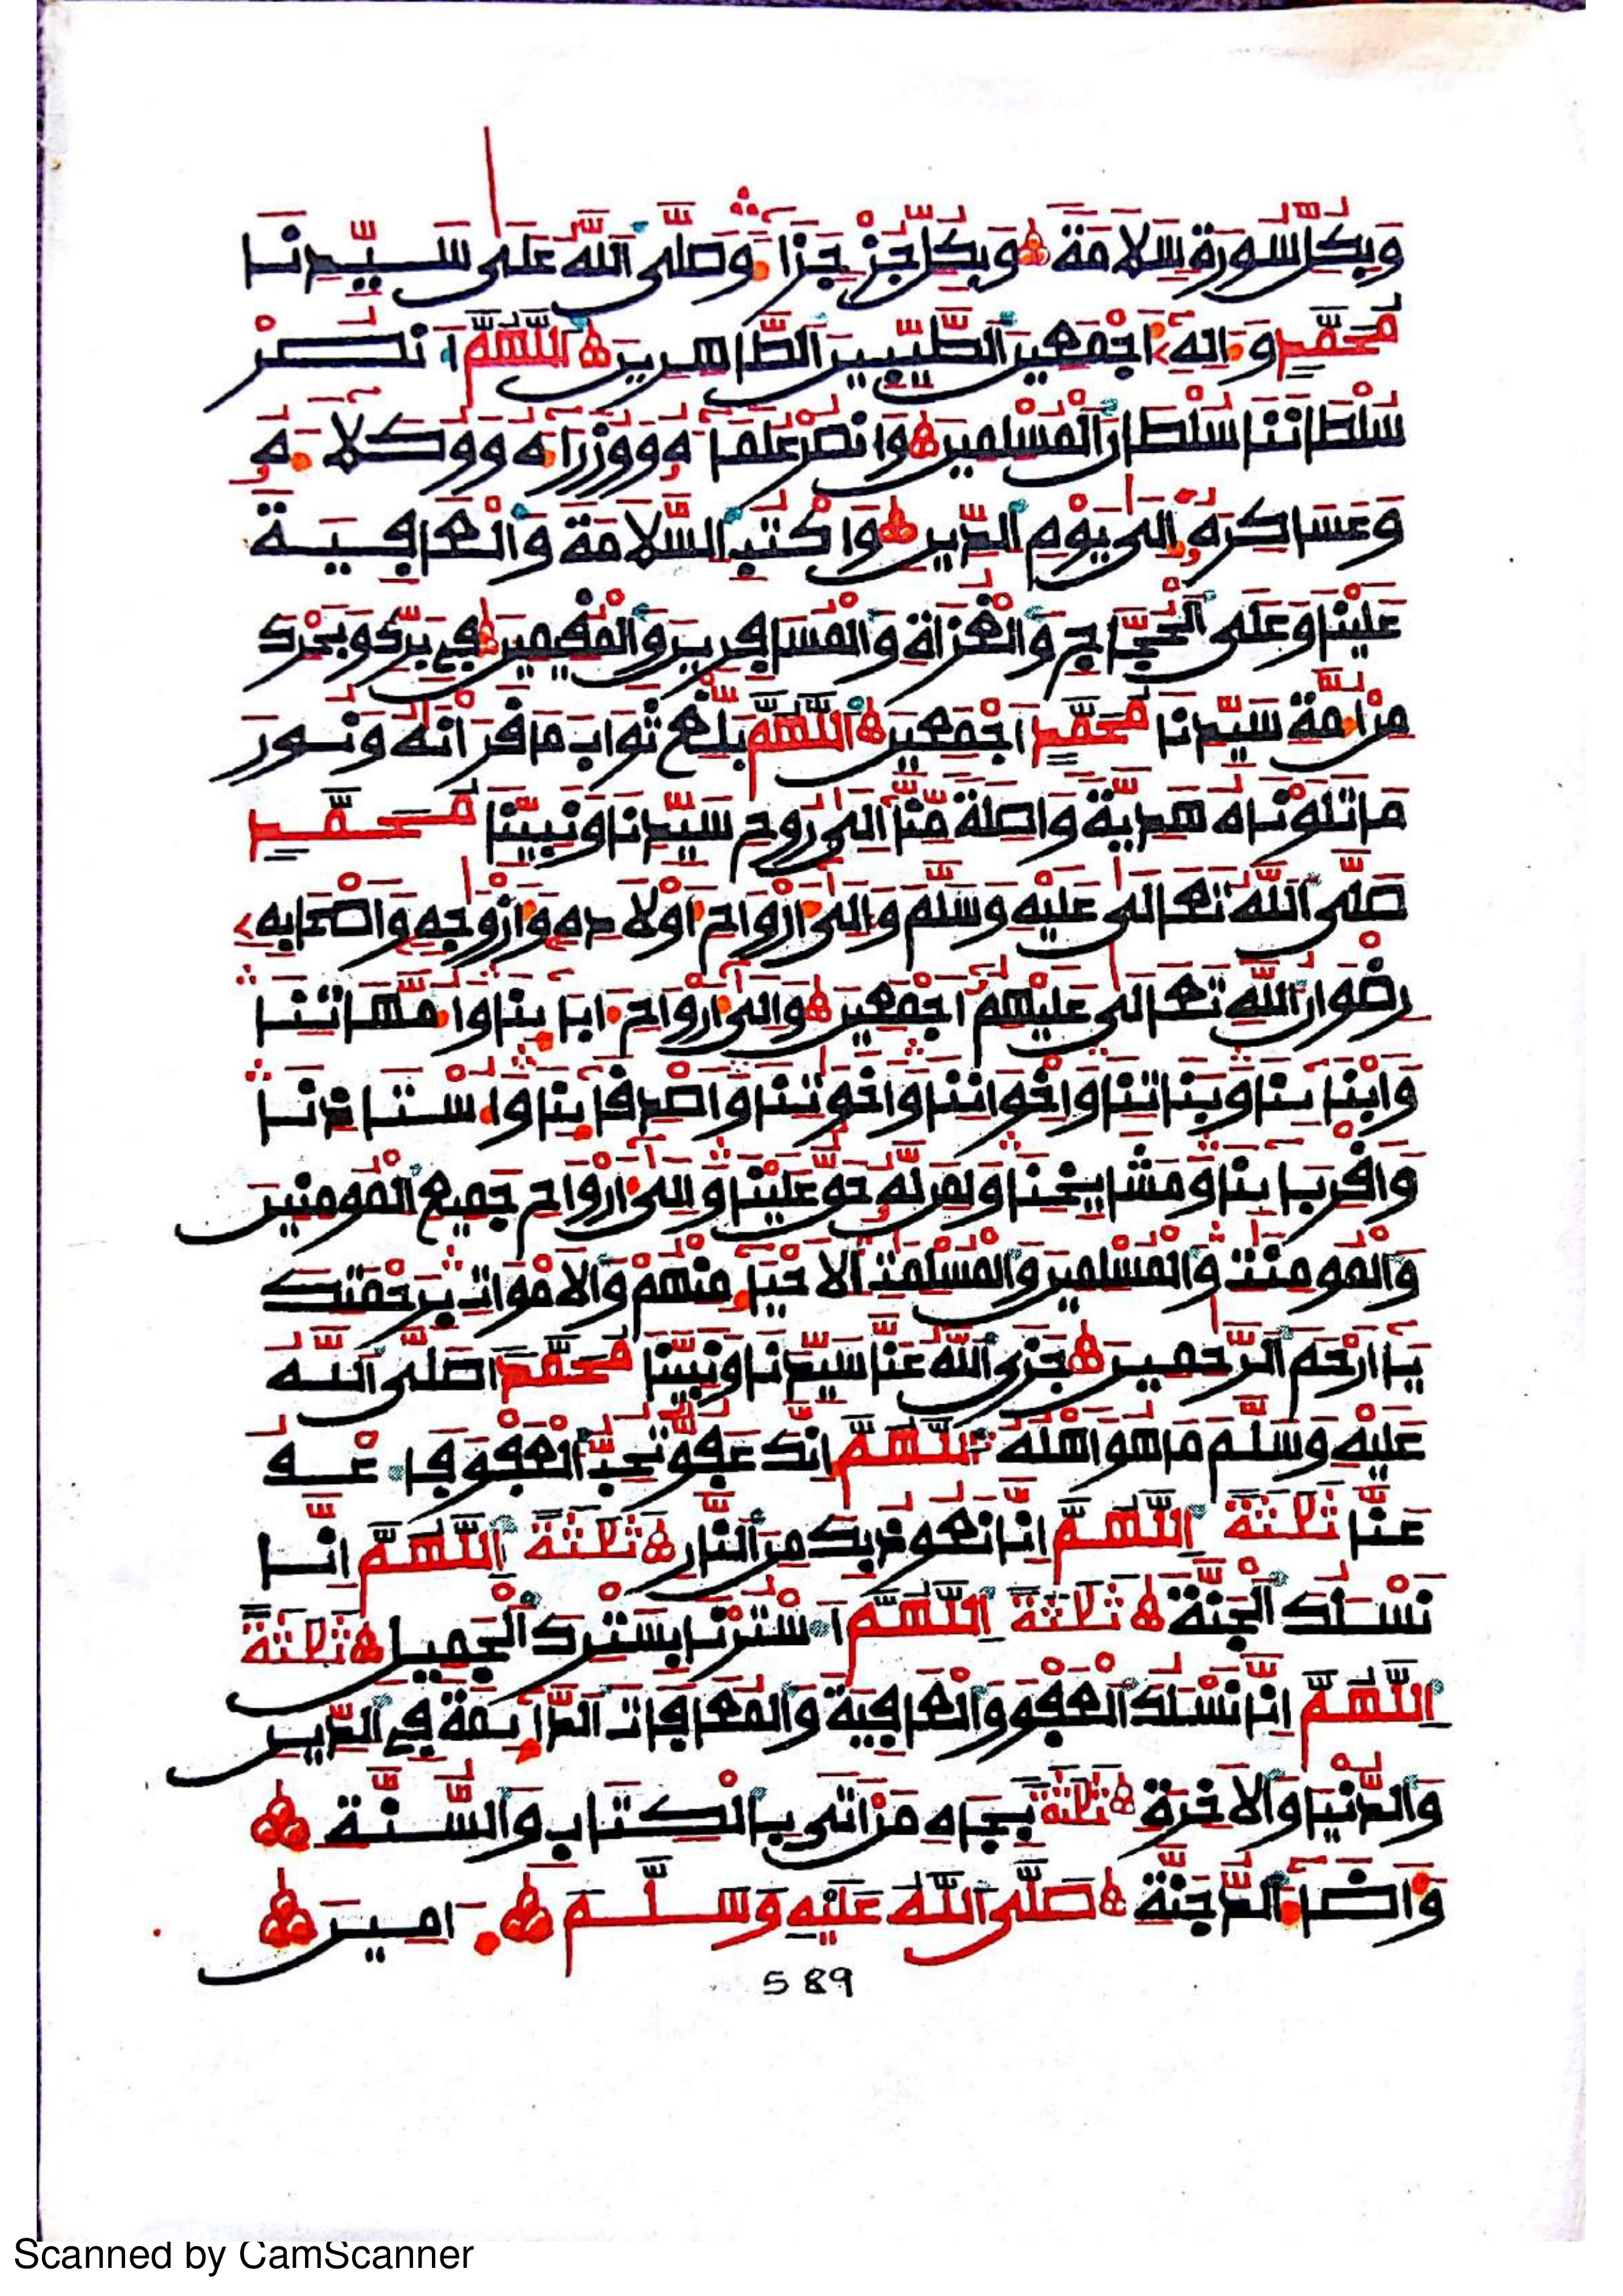 وَبِكُلِّ سُورَةٍ سَلَامَةً وَبِكُلِّ جُزْءٍ جَزَاءً وَصَلَّى اللَّهُ عَلَى سَيِّدِنَا
مُحَمَّدٍ وَءَالِهِ أَجْمَعِينَ الطَّيِّبِينَ الطَّاهِرِينَ اللَّهُمَّ انْصُرْ
سُلْطَانَنَا سُلْطَانَ الْمُسْلِمِينَ وَانْصُرْ عُلَمَاءَهُ وَوُزَرَاءَهُ وَوُكَلَاءَهُ
وَعَسَاكِرَهُ إِلَى يَوْمِ الدِّينِ وَاكْتُبِ السَّلَامَةَ وَالْعَافِيَةَ
عَلَيْنَا وَعَلَى الْحُجَّاجِ وَالْغُزَاةِ وَالْمُسَافِرِينَ وَالْمُقِيمِينَ فِي بَرِّكَ وَبَحْرِكَ
مِنْ أُمَّةِ سَيِّدِنَا مُحَمَّدٍ أَجْمَعِينَ اللَّهُمَّ بَلِّغْ ثَوَابَ مَا قَرَأْنَاهُ وَنُورَ
مَا تَلَوْنَاهُ هَدِيَّةً وَاصِلَةً مِّنَّا إِلَى رُوحِ سَيِّدِنَا وَنَبِيِّنَا مُحَمَّدٍ
صَلَّى اللَّهُ تَعَالَى عَلَيْهِ وَسَلَّمَ وَإِلَى أَرْوَاحِ أَوْلَادِهِ وَأَزْوَجِهِ وَأَصْحَابِهِ
رِضْوَانُ اللَّهِ تَعَالَى عَلَيْهِمْ أَجْمَعِينَ وَإِلَى أَرْوَاحِ ءَابَائِنَا وَأُمَّهَاتِنَا
وَأَبْنَائِنَا وَبَنَاتِنَا وَإِخْوَانِنَا وَأَخَوَتِنَا وَأَصْدِقَائِنَا وَأُسْتَاذِنَا
وَأَقْرِبَائِنَا وَمَشَايِخِنَا وَلِمَن لَّهُ حَقٌّ عَلَيْنَا وَإِلَى أَرْوَاحِ جَمِيعِ الْمُومِنِينَ
وَالْمُومِنَتِ وَالْمُسْلِمِينَ وَالْمُسْلِمَتِ الْأَحْيَاءِ مِنْهُمْ وَالْأَمْوَاتِ بِرَحْمَتِكَ
يَا أَرْحَمَ الرَّحِمِينَ جَزَى اللَّهُ عَنَّا سَيِّدَنَا وَنَبِيَّنَا مُحَمَّدًا صَلَّى اللَّهُ
عَلَيْهِ وَسَلَّمَ مَا هُوَ أَهْلُهُ اللَّهُمَّ إِنَّكَ عَفُوٌّ تُحِبُّ الْعَفْوَ فَاعْفُ
عَنَّا ثَلَثَةً اللَّهُمَّ إِنَّا نَعُوذُ بِكَ مِنَ النَّارِ ثَلَثَةً اللَّهُمَّ إِنَّا
نَسْئَلُكَ الْجَنَّةَ ثَلَثَةً اللَّهُمَّ اسْتُرْنَا بِسِتْرِكَ الْجَمِيلِ ثَلَثَةً
اللَّهُمَّ إِنَّا نَسْئَلُكَ الْعَفْوَ وَالْعَافِيَةَ وَالْمُعَافَاتَ الدَّائِمَةَ فِي الدِّينِ
وَالدُّنْيَا وَالْآخِرَةِ ثَلَثَةً بِجَاهِ مَنْ أَتَى بِالْكِتَابِ وَالسُّنَّةِ
وَأَضَاءَ الدُّجُنَّةَ صَلَّى اللَّهُ عَلَيْهِ وَسَلَّمَ ءَامِينَ
589
Scanned by CamScanner